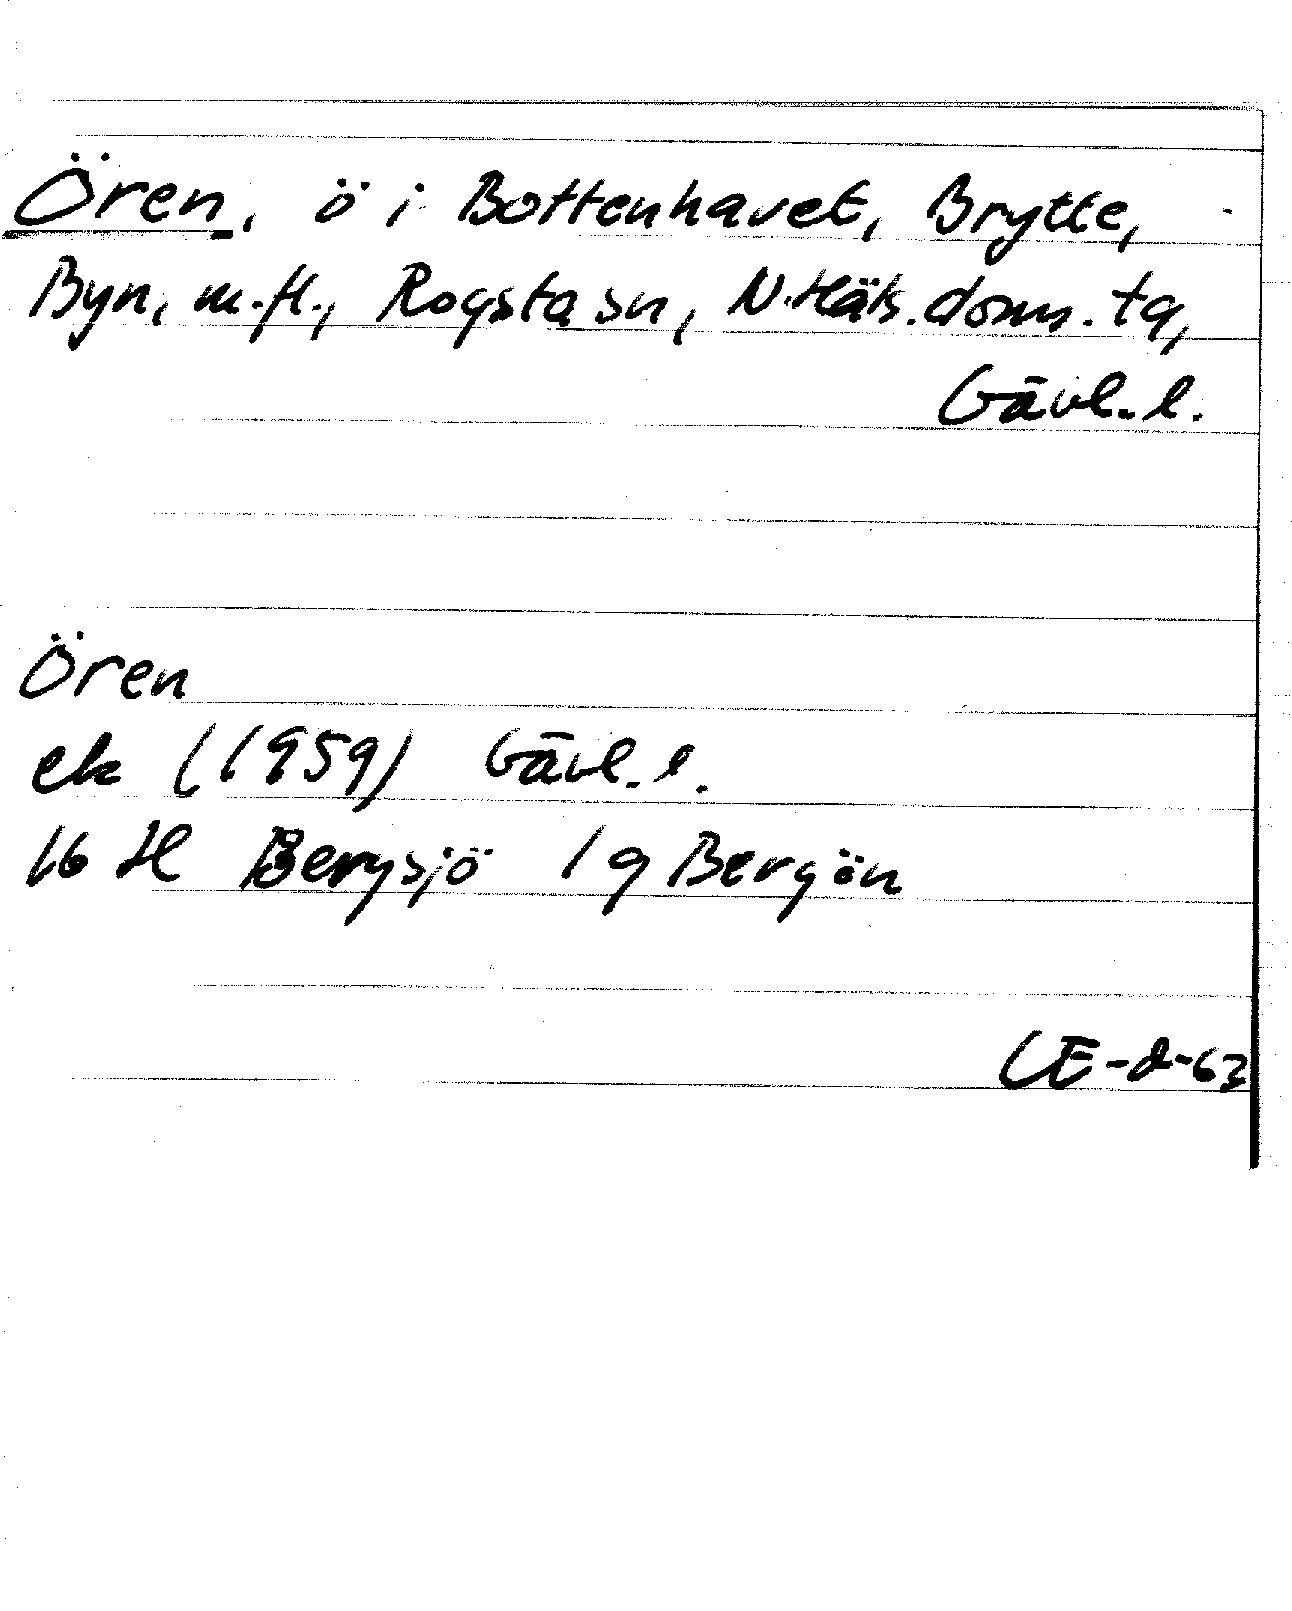 Ören, ö i Bottenhavet, Brytte,
Byn, m.fl., Rogsta sn, N.Häls.doms.tg,
Gävl.l.
Ören
ek (1959) Gävl.l.
16 H Bergsjö 1g Bergön
CE-d-63